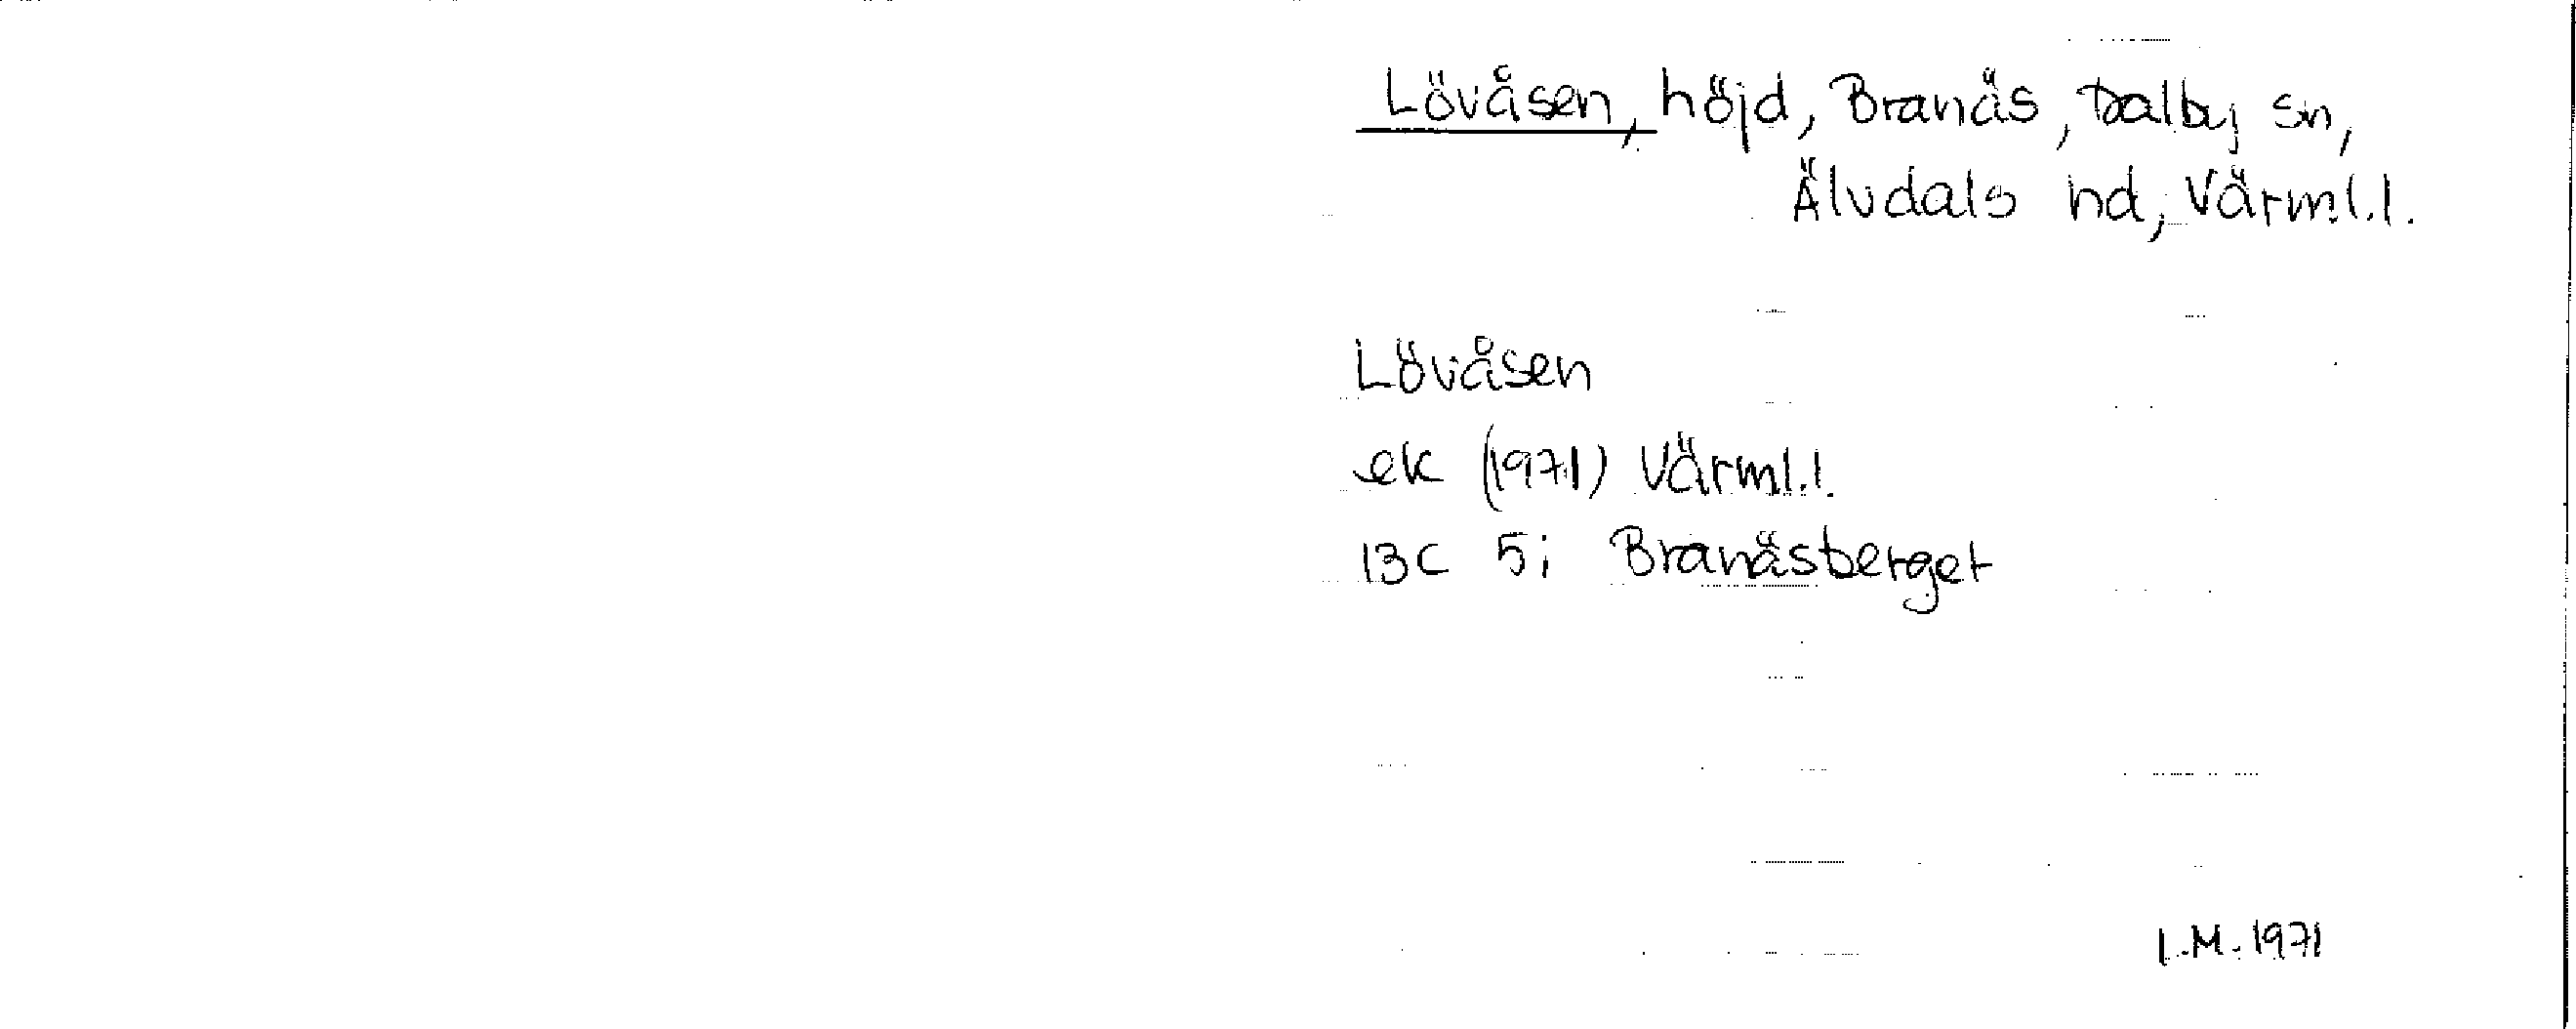 Lövåsen, höjd, Branäs, Dalby sn,
Älvdals hd, Värml.l.
Lövåsen
ek (1971) Värml.l.
13C 5i Branäsberget
I.M. 1971